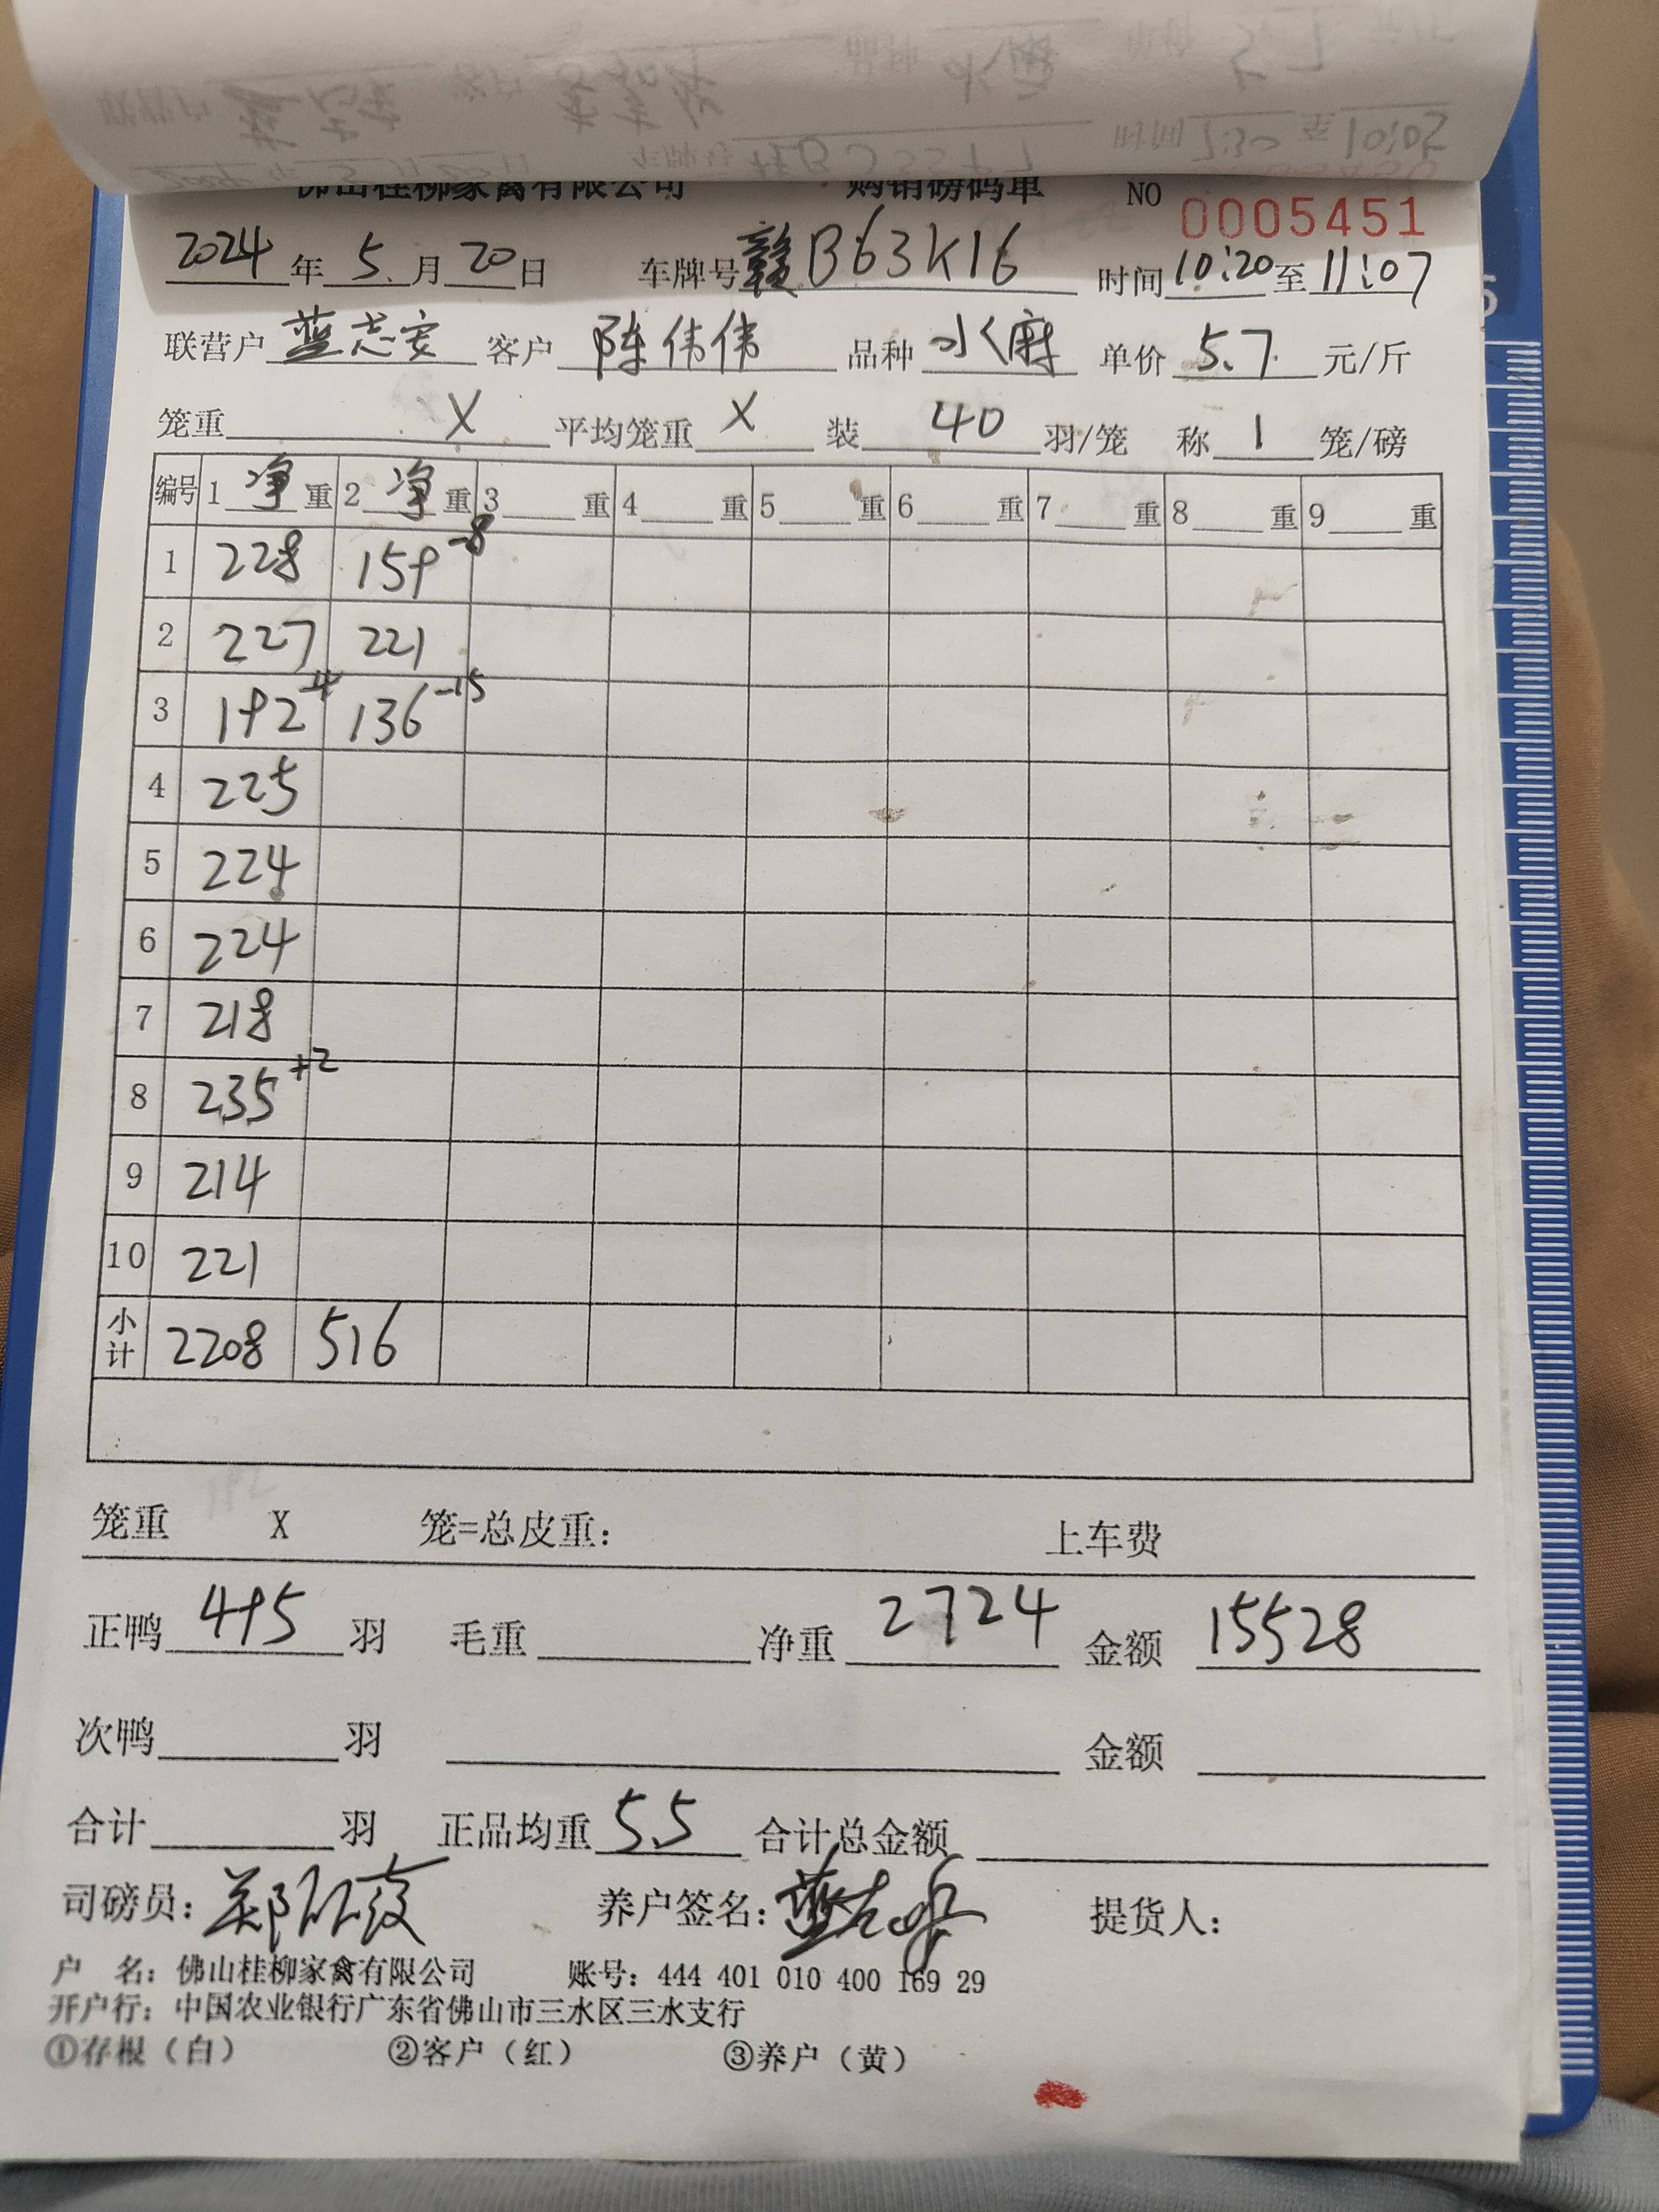 佛山桂柳家禽有限公司 购销磅码单 NO 0005451
2024 年 5 月 20 日 车牌号 赣B63K16 时间 10:20 至 11:07
联营户 蓝志安 客户 陈伟伟 品种 水麻 单价 5.7 元/斤
笼重 X 平均笼重 X 装 40 羽/笼 称 1 笼/磅
编号 1 净 重 2 净 重 3 重 4 重 5 重 6 重 7 重 8 重 9 重
1 228 159 -8
2 227 221
3 192 -4 136 -15
4 225
5 224
6 224
7 218
8 235 +2
9 214
10 221
小计 2208 516
笼重 X 笼=总皮重: 上车费
正鸭 495 羽 毛重 净重 2724 金额 15528
次鸭 羽 金额
合计 羽 正品均重 5.5 合计总金额
司磅员: 养户签名: 提货人:
户 名: 佛山桂柳家禽有限公司 账号: 444 401 010 400 169 29
开户行: 中国农业银行广东省佛山市三水区三水支行
①存根（白） ②客户（红） ③养户（黄）